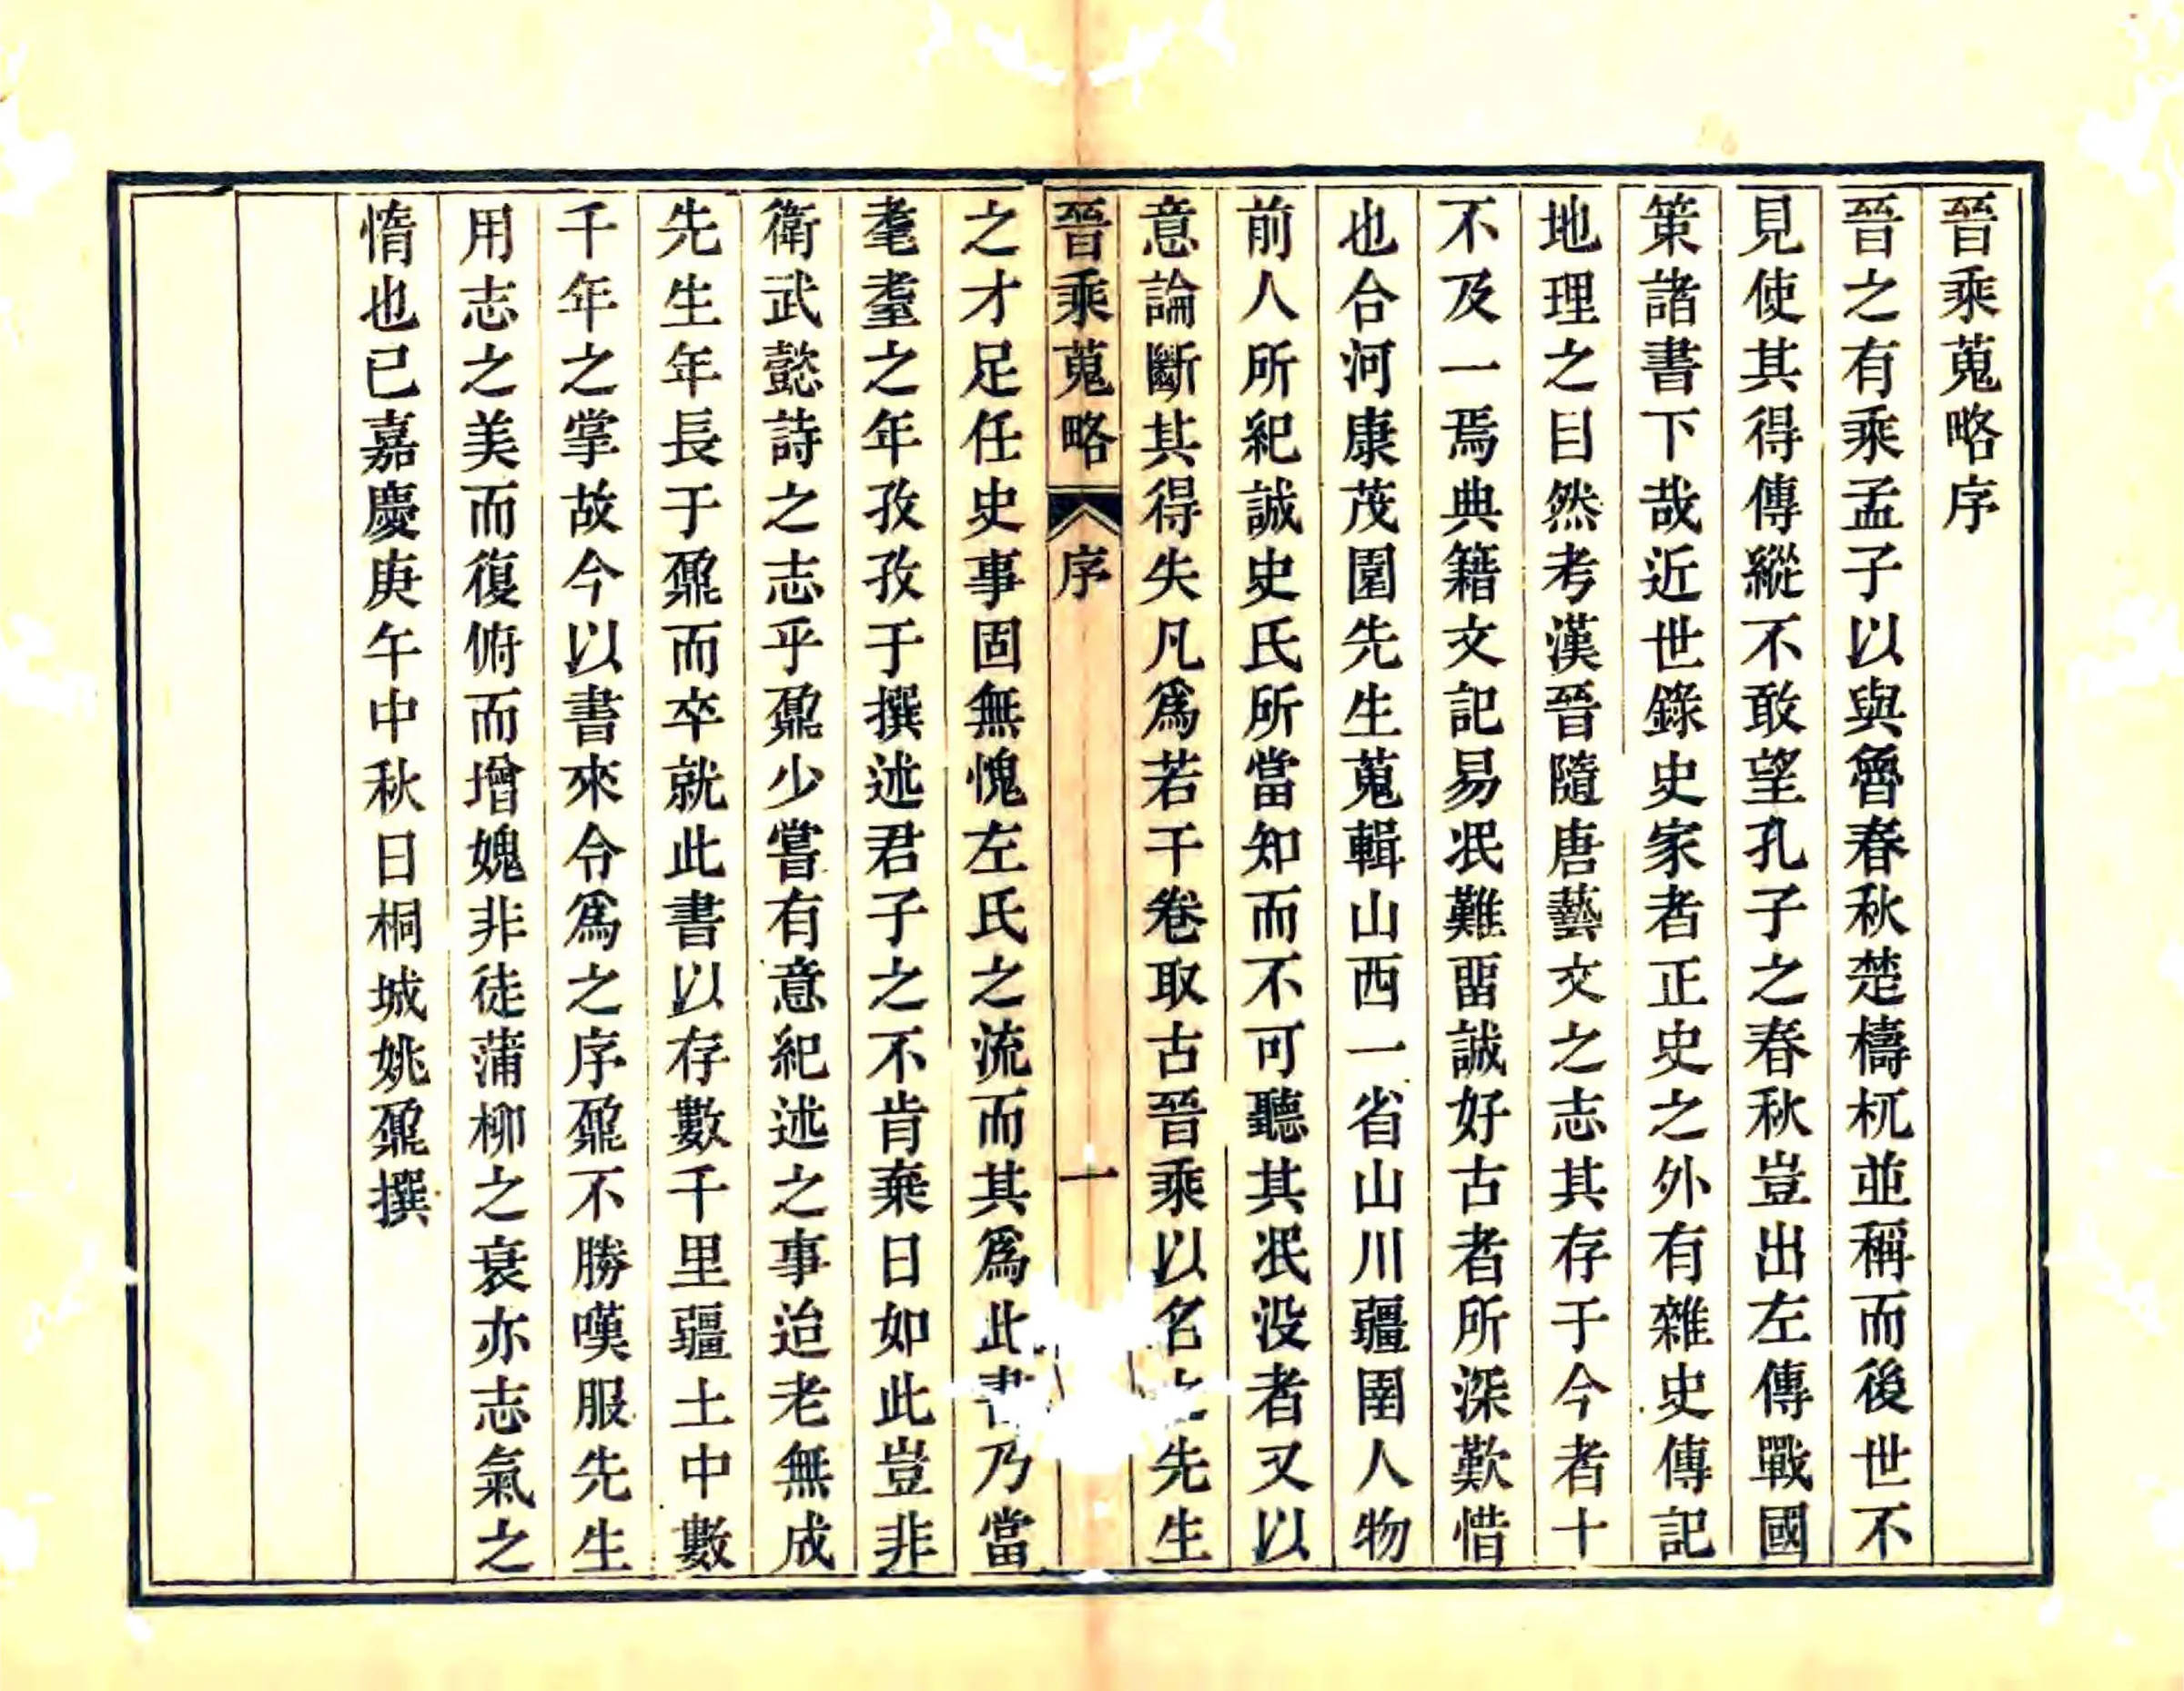 晉乘蒐略序
晉之有乘孟子以與魯春秋楚檮杌並稱而後世不
見使其得傳縱不敢望孔子之春秋豈出左傳戰國
策諸書下哉近世錄史家者正史之外有雜史傳記
地理之目然考漢晉隨唐藝文之志其存于今者十
不及一焉典籍文記易泯難畱誠好古者所深歎惜
也合河康茂園先生蒐輯山西一省山川疆圉人物
前人所紀誠史氏所當知而不可聽其泯没者又以
意論斷其得失凡爲若干卷取古晉乘以名 先生
晉乘蒐略 序 一
之才足任史事固無愧左氏之流而其爲此書乃當
耄耋之年孜孜于撰述君子之不肯棄日如此豈非
衛武懿詩之志乎鼐少嘗有意紀述之事迨老無成
先生年長于鼐而卒就此書以存數千里疆土中數
千年之掌故今以書來令爲之序鼐不勝嘆服先生
用志之美而復俯而增媿非徒蒲柳之衰亦志氣之
惰也已嘉慶庚午中秋日桐城姚鼐撰